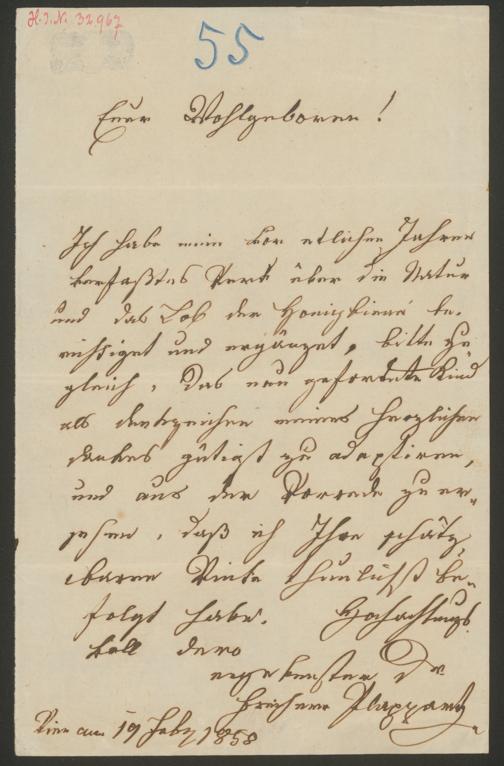 H.I.N. 32.967
55
Euer Wohlgeboren!
Ich habe mein vor etlichen Jahren
verfaßtes Werk über die Natur
und das Lob der Honigbiene be-
richtiget und ergänzet, bitte zu-
gleich, das neu geforderte Kind
als Denkzeichen meines herzlichen
Dankes gütigst zu adoptiren,
und aus der Vorrede zu er-
sehen, daß ich Ihre schätz-
baren Winke thunlichst be-
folgt habe. Hochachtungs-
voll dero
ergebenster Dr
Freiherr Plappart
Wien am 19 Feb 1858